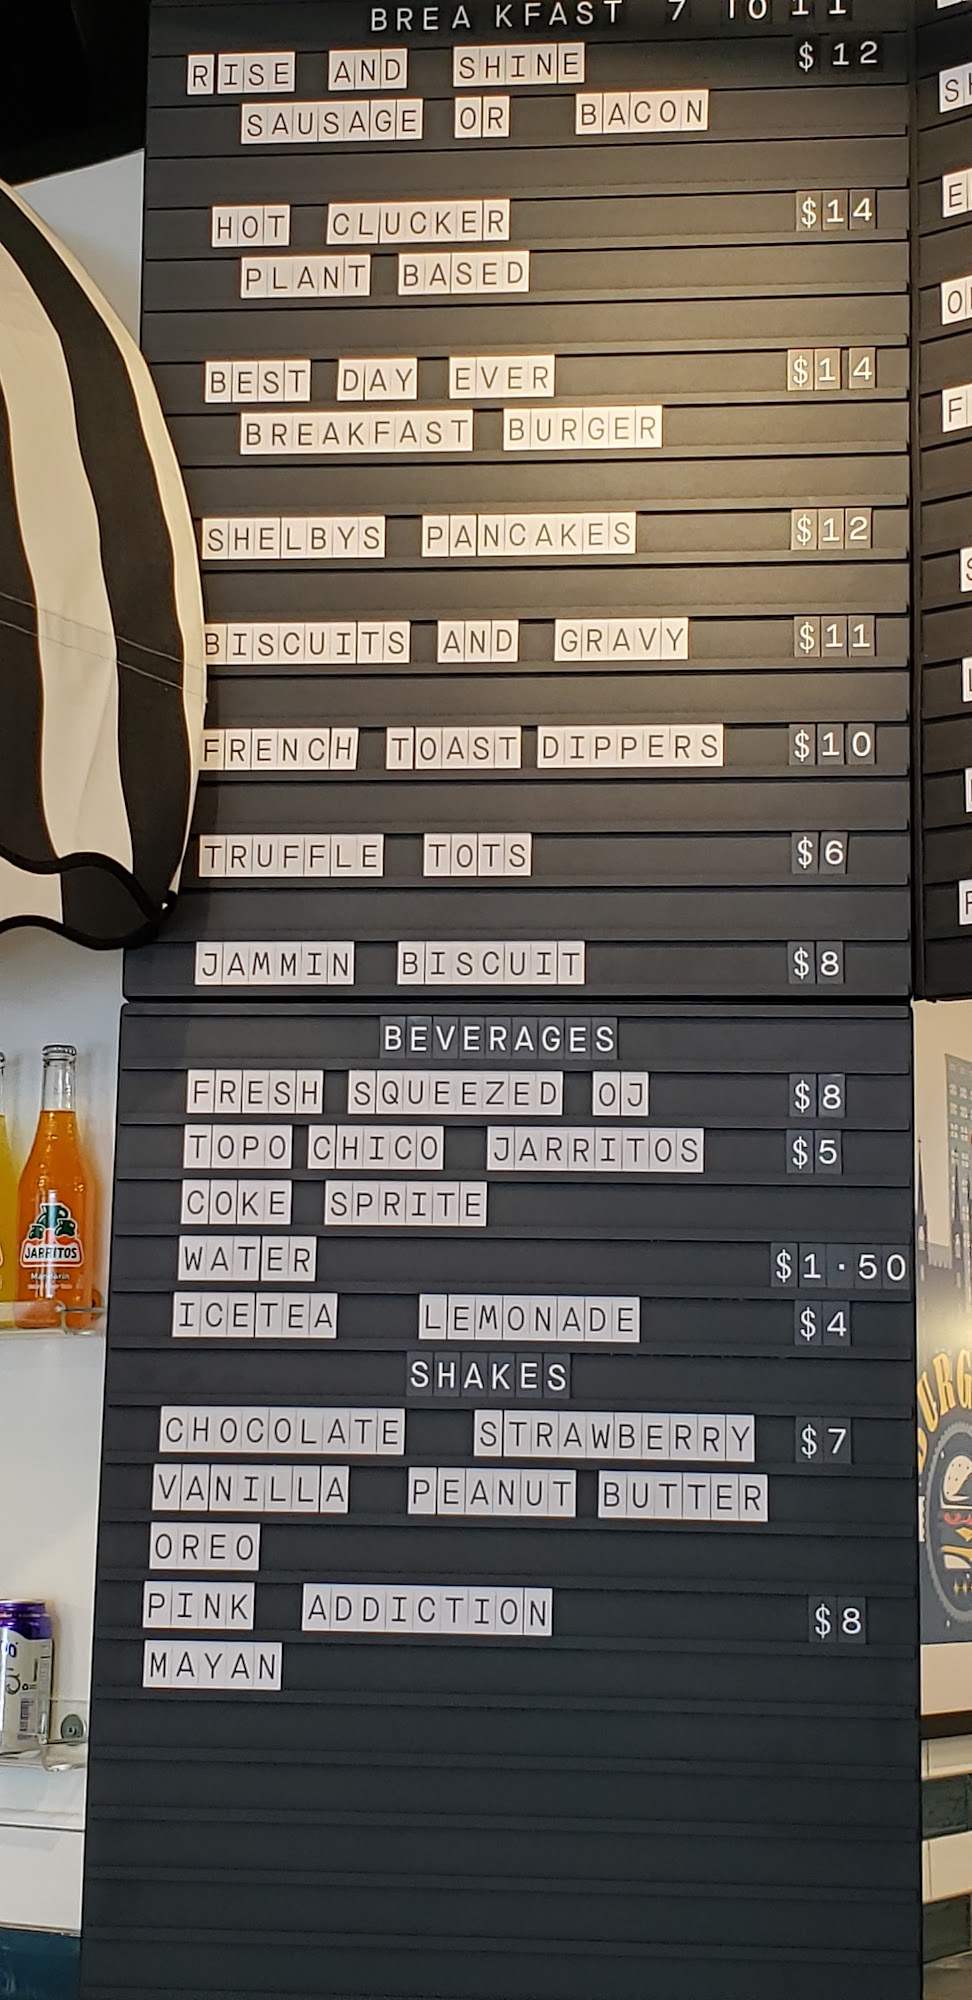 BREAKFAST 7 TO 11
RISE AND SHINE $12
SAUSAGE OR BACON
HOT CLUCKER $14
PLANT BASED
BEST DAY EVER $14
BREAKFAST BURGER
SHELBYS PANCAKES $12
BISCUITS AND GRAVY $11
FRENCH TOAST DIPPERS $10
TRUFFLE TOTS $6
JAMMIN BISCUIT $8
BEVERAGES
FRESH SQUEEZED OJ $8
TOPO CHICO JARRITOS $5
COKE SPRITE
WATER $1.50
ICETEA LEMONADE $4
SHAKES
CHOCOLATE STRAWBERRY $7
VANILLA PEANUT BUTTER
OREO
PINK ADDICTION $8
MAYAN
JARRITOS
Mandarin